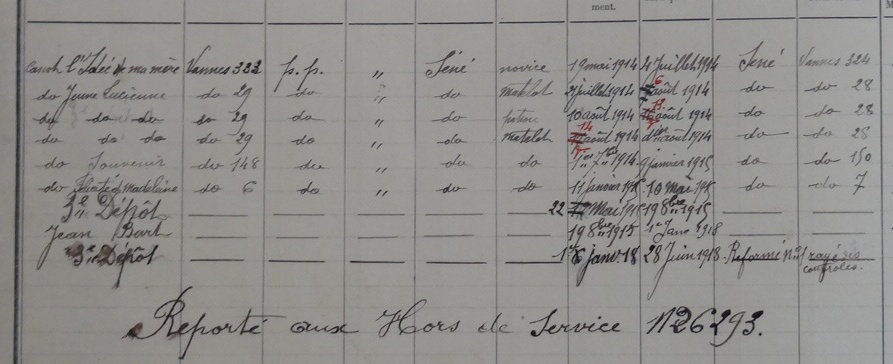 ment.
canot l'Idée de ma mère Vannes 332 p.p. " Séné novice 19 mai 1914 4 Juillet 1914 Séné Vannes 324
do Jeune Lucienne do 29 do " do Matelot juillet 1914 6 août 1914 do do 28
do do do do 29 do " do patron 10 août 1914 août 1914 do do 28
do do do do 29 do " do matelot 14 août 1914 août 1914 do do 28
do Souvenir do 148 do " do do 1er 7bre 1914 9 janvier 1915 do do 150
do Madeleine do 6 do " do do 11 janvier 1915 10 Mai 1915 do do 7
3e Dépôt 22 Mai 1915 19 8bre 1915
Jean Bart 19 8bre 1915 1er Janv 1918
3e Dépôt 1er janv. 18 28 Juin 1918 Réformé n°1 rayé des
contrôles.
Reporté aux Hors de Service N°26293.